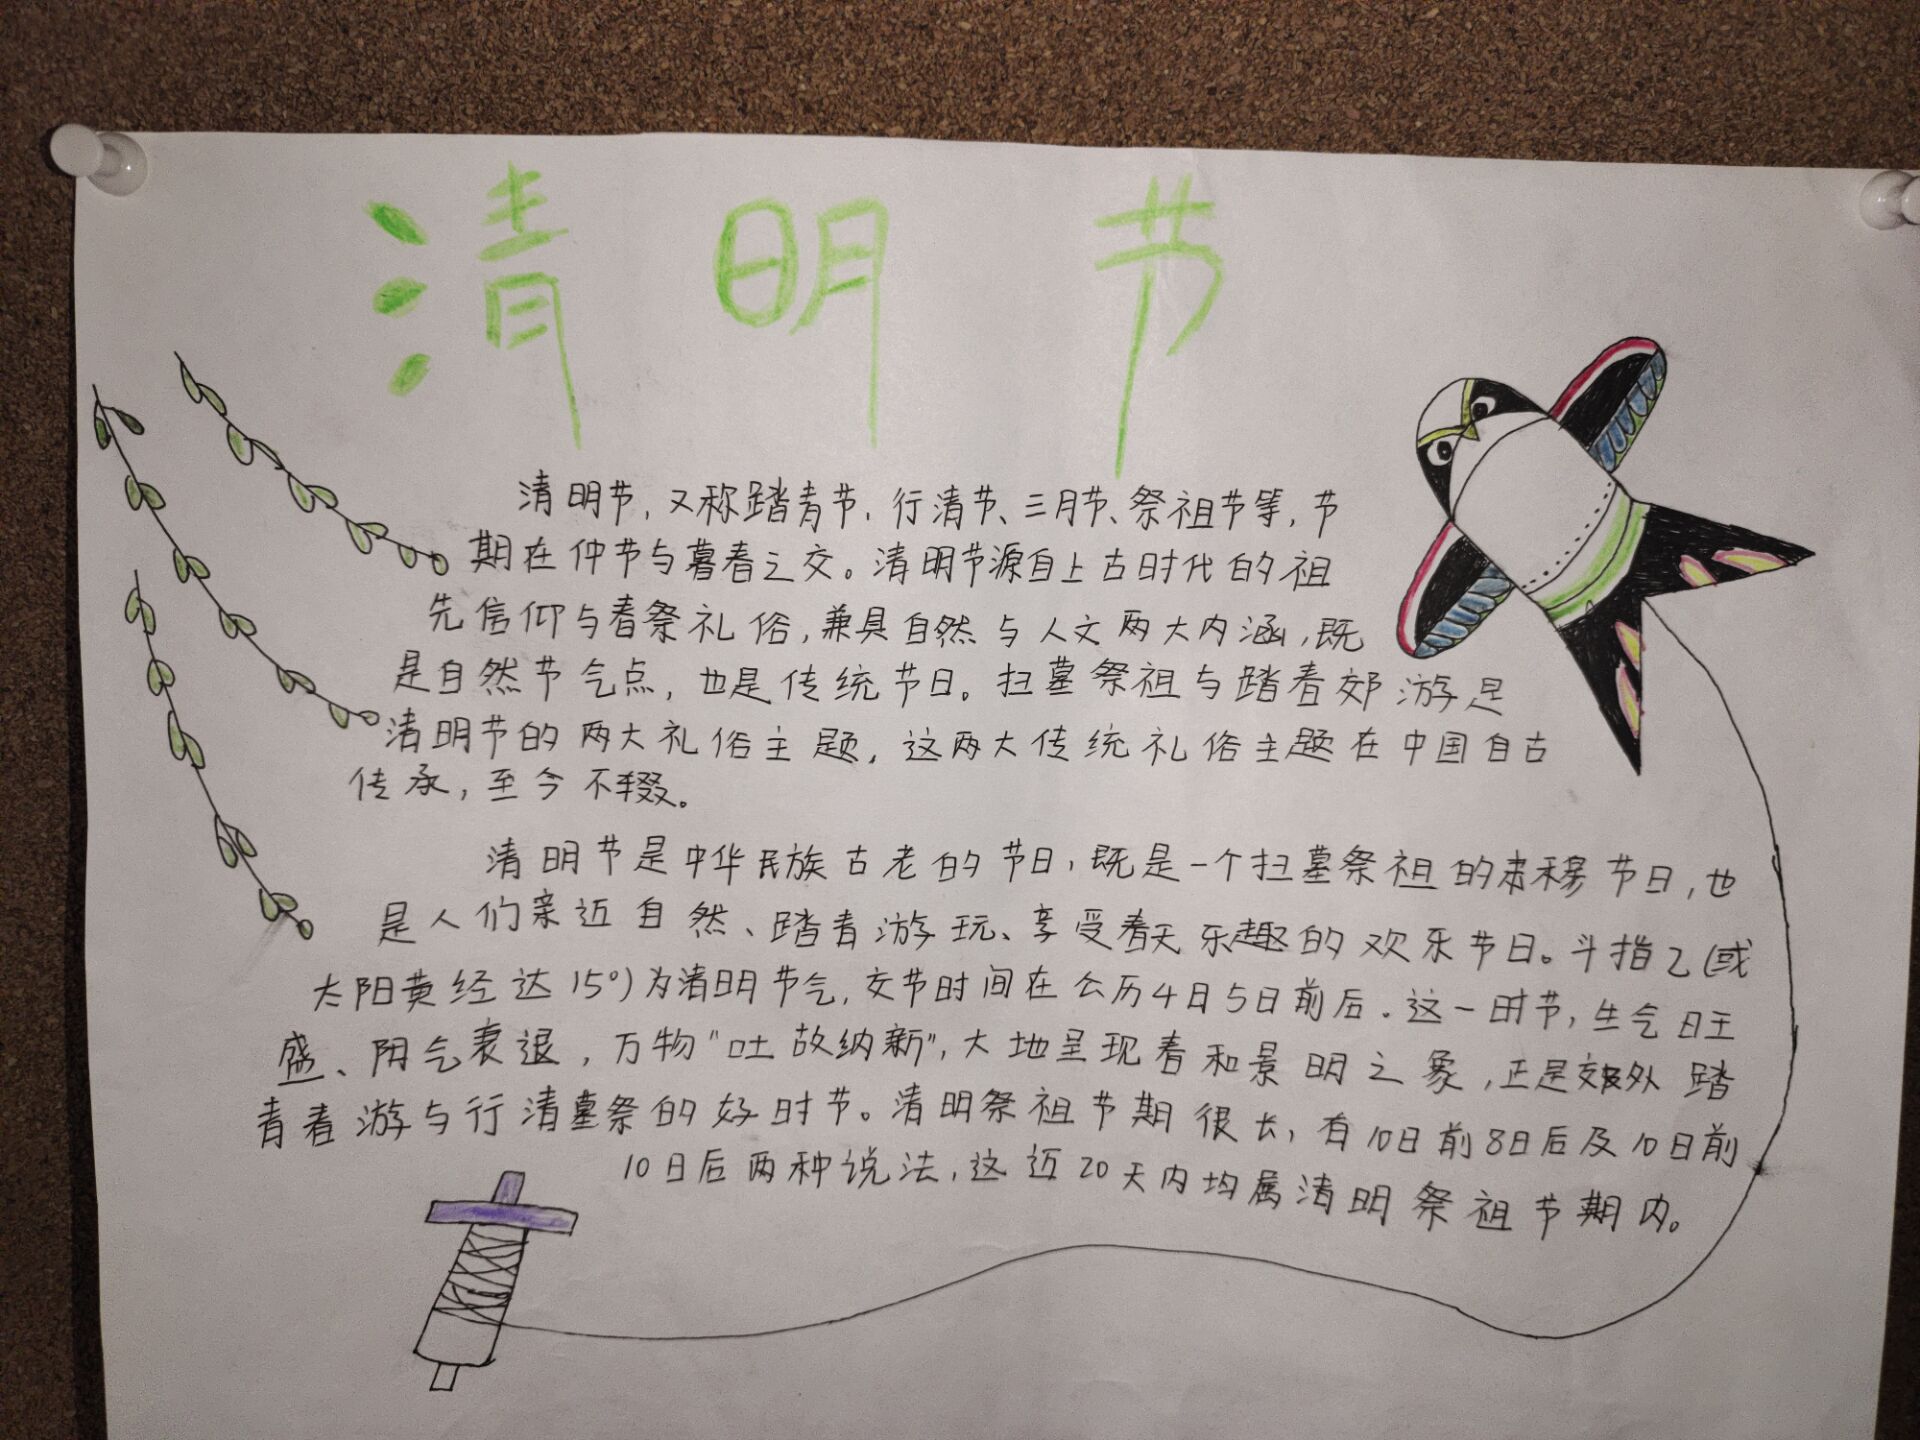 清明节
清明节，又称踏青节，行清节、三月节、祭祖节等，节
期在仲节与暮春之交。清明节源自上古时代的祖
先信仰与春祭礼俗，兼具自然与人文两大内涵，既
是自然节气点，也是传统节日。扫墓祭祖与踏春郊游是
清明节的两大礼俗主题，这两大传统礼俗主题在中国自古
传承，至今不辍。
清明节是中华民族古老的节日，既是一个扫墓祭祖的肃穆节日，也
是人们亲近自然、踏青游玩、享受春天乐趣的欢乐节日。斗指乙(或
太阳黄经达15°)为清明节气，交节时间在公历4月5日前后。这一时节，生气旺
盛、阴气衰退，万物“吐故纳新”，大地呈现春和景明之象，正是郊外踏
青春游与行清墓祭的好时节。清明祭祖节期很长，有10日前8日后及10日前
10日后两种说法，这近20天内均属清明祭祖节期内。